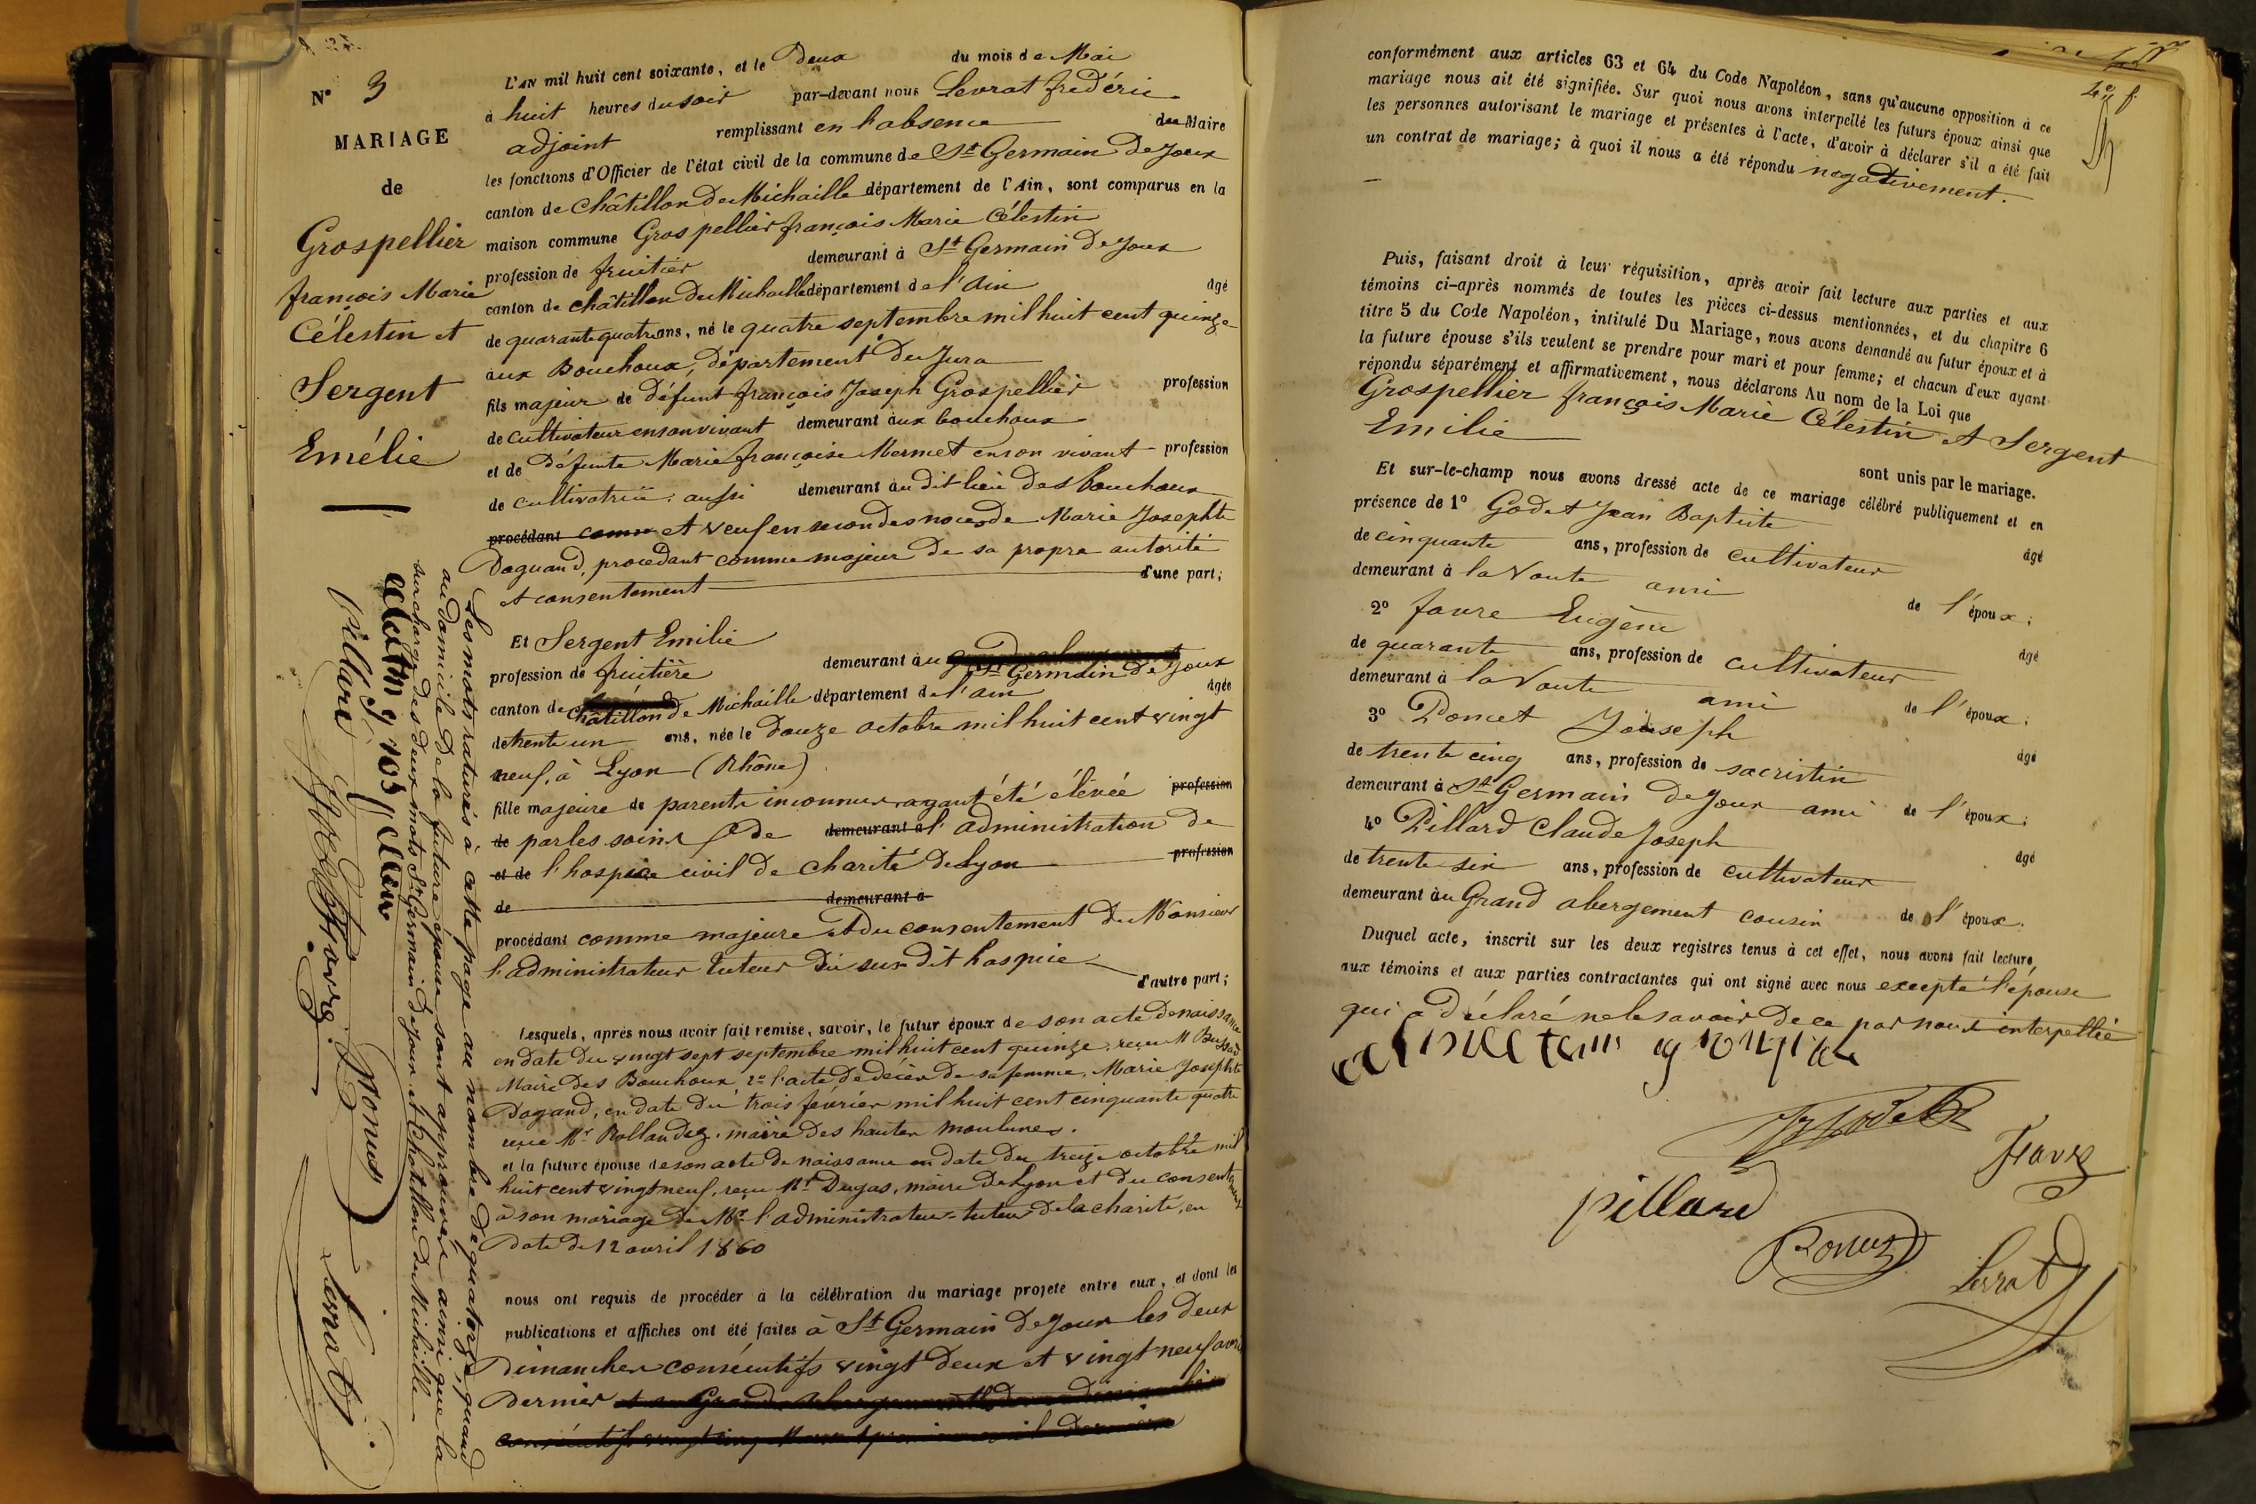 N° 3
MARIAGE
de
Grospellier
françois Marie
Célestin et
Sergent
Emélie
L'AN mil huit cent soixante, et le Deux du mois de Mai
à huit heures du soir par-devant nous Levrat frédéric
adjoint remplissant en l'absence du Maire
les fonctions d'Officier de l'état civil de la commune de St Germain De Joux
canton de Châtillon De Michaille département de l'Ain, sont comparus en la
maison commune Grospellier françois Marie Célestin
profession de fruitier demeurant à St Germain De Joux
canton de Châtillon De Michaille département de l'Ain âgé
de quarante quatre ans, né le quatre septembre mil huit cent quinze
aux Bouchoux, département du Jura
fils majeur de Défunt françois Joseph Grospellier profession
de cultivateur en son vivant demeurant aux bouchoux
et de Défunte Marie françoise Mermet en son vivant profession
de cultivatrice aussi demeurant au dit lieu des bouchoux
procédant comme et veuf en secondes noces de Marie Josephte
Daguand, procédant comme majeur de sa propre autorité
et consentement d'une part;
Et Sergent Emilie
profession de fruitière demeurant à St Germain De Joux
canton de Châtillon De Michaille département de l'ain âgée
de trente un ans, née le Douze octobre mil huit cent vingt
neuf, à Lyon (Rhône)
fille majeure de parents inconnus ayant été élevée profession
de par les soins de demeurant à l'administration de
et de l'hospice civil de charité de Lyon profession
de demeurant à
procédant comme majeure et du consentement du Monsieur
l'administrateur tuteur du sus dit hospice
d'autre part;
Lesquels, après nous avoir fait remise, savoir, le futur époux de son acte de naissance
en date du vingt sept septembre mil huit cent quinze, reçu M
Maire des Bouchoux, 2° l'acte de décès de sa femme, Marie Josephte
Dagand, en date du trois février mil huit cent cinquante quatre
reçu Mr Rollandez, maire des hautes moulunes.
et la future épouse de son acte de naissance en date du treize octobre mil
huit cent vingt neuf, reçu Mr Dugas, maire de Lyon et du consentement
à son mariage de Mr l'administrateur-tuteur de la charité, en
Date du 12 avril 1860
nous ont requis de procéder à la célébration du mariage projeté entre eux, et dont les
publications et affiches ont été faites à St Germain De Joux les deux
Dimanches consécutifs vingt deux et vingt neuf avril
Dernier
Les mots raturés à cette page au nombre de quatorze, quand
au domicile de la future épouse sont approuvés ainsi que la
surcharge des deux mots St Germain de Joux et Chatillon de Michaille
pillard
Levrat
conformément aux articles 63 et 64 du Code Napoléon, sans qu'aucune opposition à ce
mariage nous ait été signifiée. Sur quoi nous avons interpellé les futurs époux ainsi que
les personnes autorisant le mariage et présentes à l'acte, d'avoir à déclarer s'il a été fait
un contrat de mariage; à quoi il nous a été répondu négativement.
Puis, faisant droit à leur réquisition, après avoir fait lecture aux parties et aux
témoins ci-après nommés de toutes les pièces ci-dessus mentionnées, et du chapitre 6
titre 5 du Code Napoléon, intitulé Du Mariage, nous avons demandé au futur époux et à
la future épouse s'ils veulent se prendre pour mari et pour femme; et chacun d'eux ayant
répondu séparément et affirmativement, nous déclarons Au nom de la Loi que
Grospellier françois Marie Célestin et Sergent
Emilie
sont unis par le mariage.
Et sur-le-champ nous avons dressé acte de ce mariage célébré publiquement et en
présence de 1° Godet Jean Baptiste âgé
de cinquante ans, profession de cultivateur
demeurant à la Voute ami de l'époux;
2° favre Eugène âgé
de quarante ans, profession de cultivateur
demeurant à la Voute ami de l'époux;
3° Poncet Joseph âgé
de trente cinq ans, profession de sacristin
demeurant à St Germain De Joux ami de l'époux;
4° Pillard Claude Joseph âgé
de trente six ans, profession de cultivateur
demeurant au Grand abergement cousin de l'époux.
Duquel acte, inscrit sur les deux registres tenus à cet effet, nous avons fait lecture
aux témoins et aux parties contractantes qui ont signé avec nous excepté l'épouse
qui a déclaré ne le savoir de ce par nous interpellée
pillard
Levrat